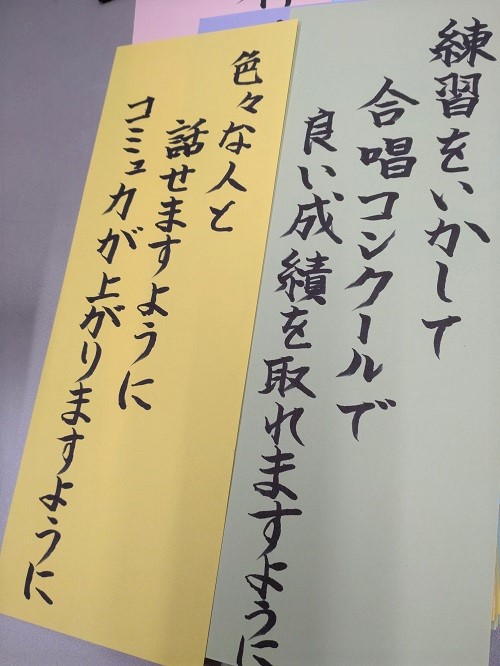 練習をいかして
合唱コンクールで
良い成績を取れますように
色々な人と
話せますように
コミュ力が上がりますように